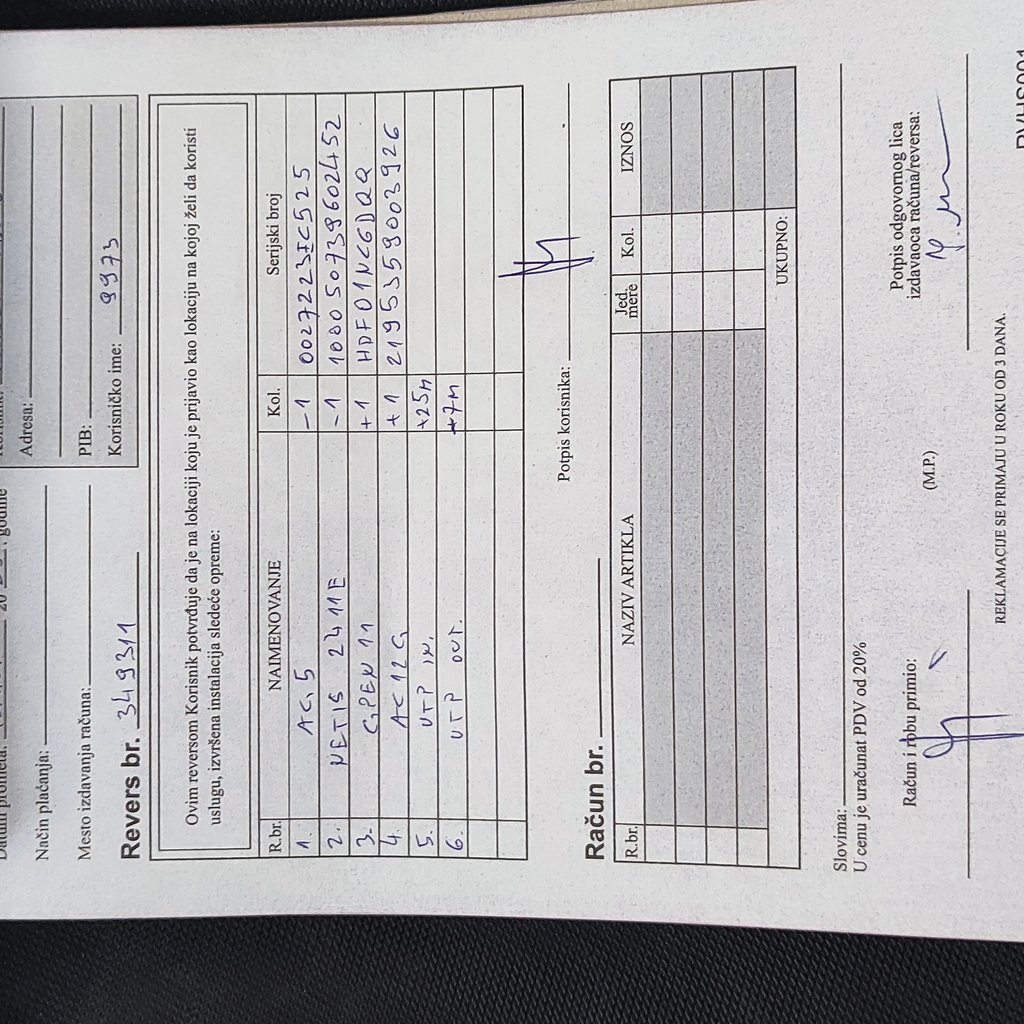 godine
Način plaćanja:
Mesto izdavanja računa:
Adresa:
PIB:
Korisničko ime: 9973
Revers br. 349311
Ovim reversom Korisnik potvrđuje da je na lokaciji koju je prijavio kao lokaciju na kojoj želi da koristi
uslugu, izvršena instalacija sledeće opreme:
R.br. NAIMENOVANJE Kol. Serijski broj
1. AG5 -1
2. NETIS 2411E -1 100050739602452
3. GPEN 11 +1 HDF01NCGDQQ
4. AC12G +1 2195359003926
5. UTP IN. +25m
6. UTP OUT. +7m
Potpis korisnika:
Račun br.
R.br. NAZIV ARTIKLA Jed. mere Kol. IZNOS
UKUPNO:
Slovima:
U cenu je uračunat PDV od 20%
Račun i robu primio:
(M.P.)
Potpis odgovornog lica
izdavaoca računa/reversa:
REKLAMACIJE SE PRIMAJU U ROKU OD 3 DANA.